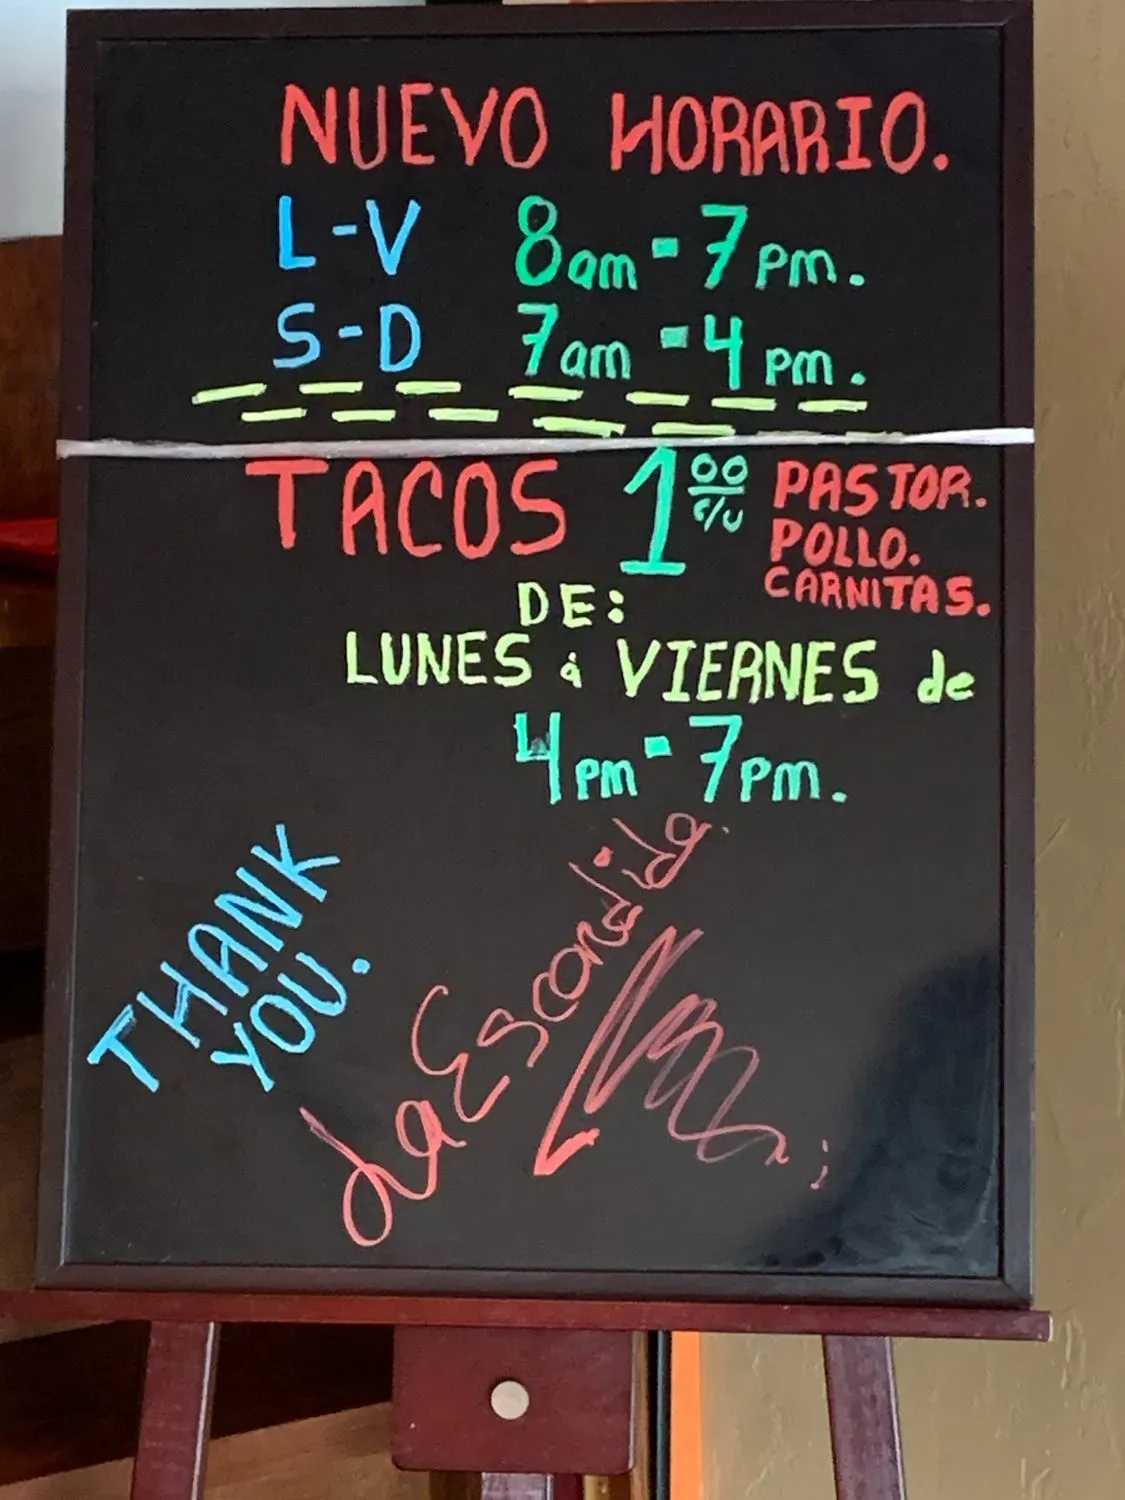 NUEVO HORARIO.
L-V 8am - 7pm.
S-D 7am - 4pm.
TACOS 1.00 c/u PASTOR.
POLLO.
CARNITAS.
DE:
LUNES á VIERNES de
4pm - 7pm.
THANK
YOU.
La Escondida.